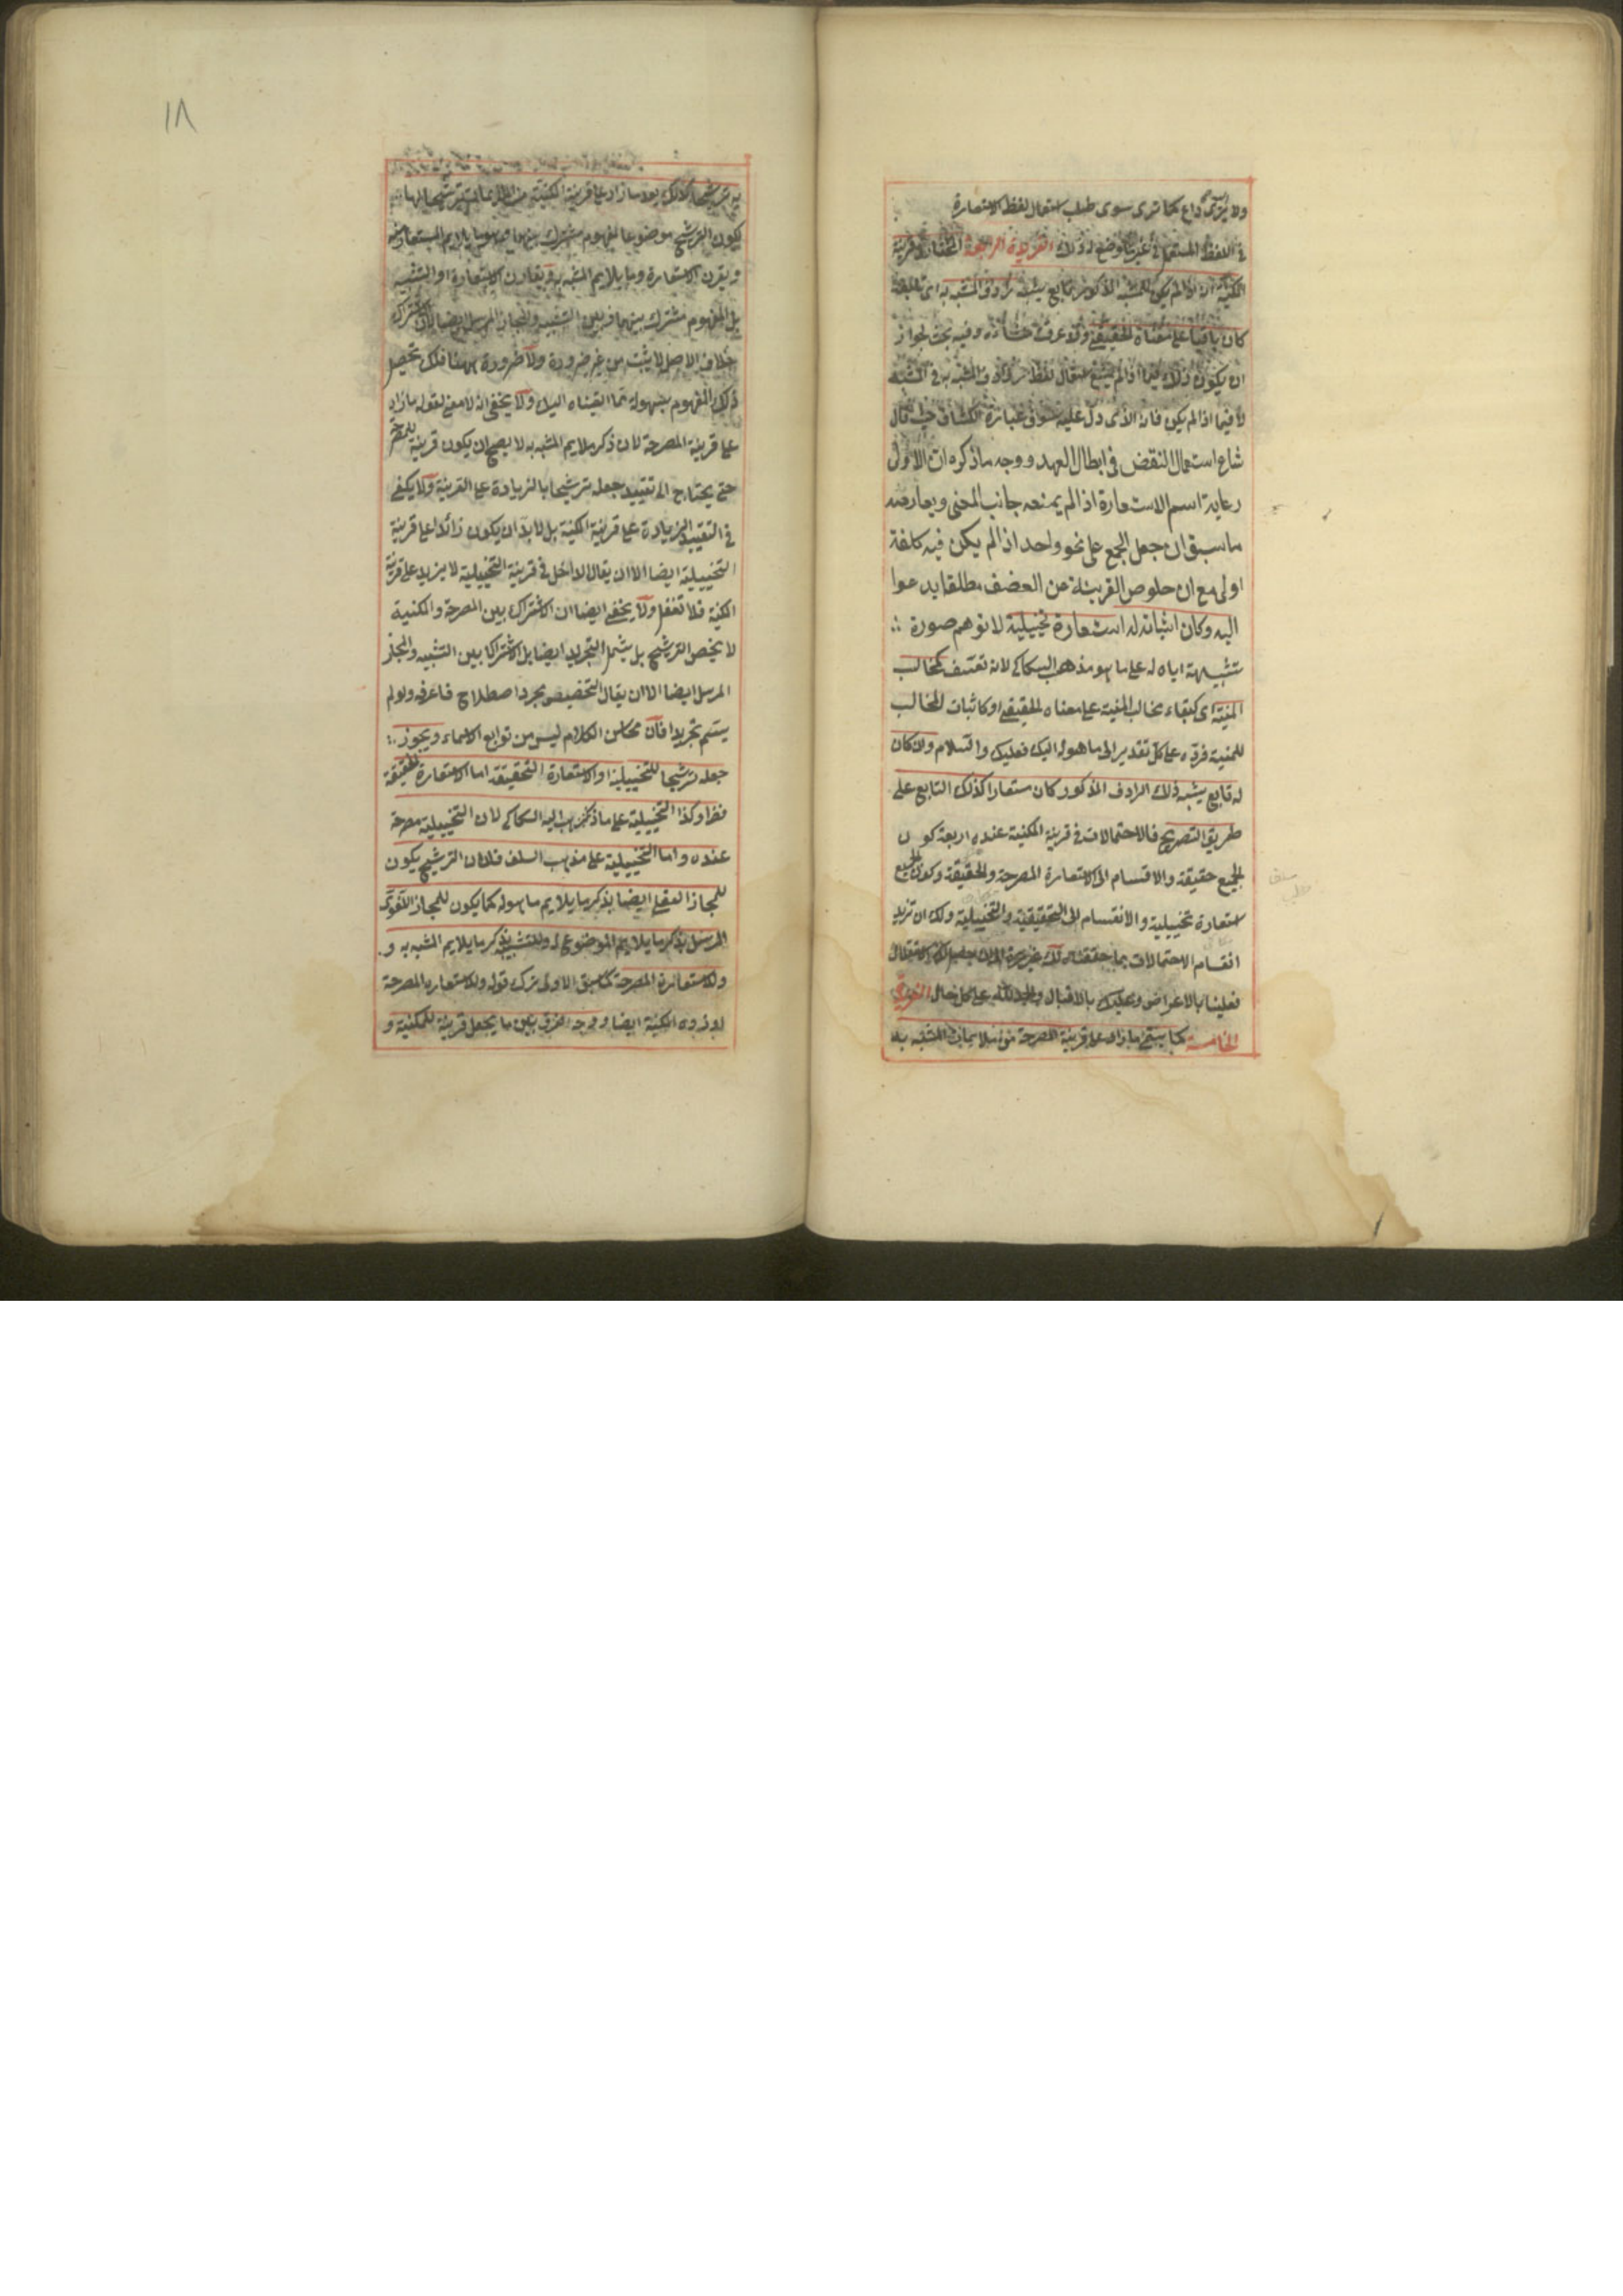 ولا داع كما ترى سوى طلب استعمال لفظ الاستعارة
في اللفظ المستعمل في غير ما وضع له ولك الفريدة الرابعة المختار في قرينة
المكنية انه اذا لم يكن للمشبه المذكور تابع يشبه رادف المشبه به
كان باقيا على معناه الحقيقي وفيه بحث لجواز
ان يكون ذلك فيما اذا لم يشع استعمال لفظ رادف المشبه به في المشبه
لا فيما اذا لم يكن فانه الذى دل عليه سوق عبارة الكشاف حيث قال
شاع استعمال النقض في ابطال العهد ووجه ما ذكره ان الاولى
رعاية اسم الاستعارة اذا لم يمنعه جانب المعنى ويعارضه
ما سبق ان جعل الجمع على نحو واحد اذا لم يكن فيه كلفة
اولى مع ان خلوص القرينة من الضعف مطلقا يدعوا
اليه وكان اثباته له استعارة تخييلية لا توهم صورة
تشبيهية اياه له على ما هو مذهب السكاكى لانه تعسف كمخالب
المنية اى كبقاء مخالب المنية على معناه الحقيقي او كاثبات المخالب
للمنية فرده على كل تقدير الى ما هو له اليك فعليك والسلام وان كان
له تابع يشبه ذلك الرادف المذكور كان مستعارا كذلك التابع على
طريق التصريح فالاحتمالات في قرينة المكنية عنده اربعة كون
الجميع حقيقة والاقسام الى الاستعارة المصرحة والحقيقة وكون الجميع
استعارة تخييلية والانقسام الى التحقيقية والتخييلية ولك ان تزيد
اقسام الاحتمالات بما حققناه لك
فعلينا بالاعراض وعليك بالاقبال والحمد لله على كل حال الفريدة
الخامسة كما يسمى ما زاد على قرينة المصرحة من ملايمات المشبه به
١٨
به ترشيحا كذلك يعد ما زاد على قرينة المكنية من الملايمات ترشيحا لها
ليكون الترشيح موضوعا لمفهوم مشترك بينهما وهو ما يلايم المستعار منه
ويقرن الاستعارة وما يلايم المشبه به ويقارن الاستعارة او التشبيه
بل المفهوم مشترك بينهما وبين التشبيه والمجاز المرسل ايضا لان الاشتراك
خلاف الاصل لا يثبت من غير ضرورة ولا ضرورة ههنا فلك تحصيل
ذلك المفهوم بسهولة مما القيناه اليك ولا يخفى انه لا معنى لقوله ما زاد
على قرينة المصرحة لان ذكر ملايم المشبه به لا يصح ان يكون قرينة للمصرحة
حتى يحتاج الى تقييد جعله ترشيحا بالزيادة على القرينة ولا يكفى
في التقييد الزيادة على قرينة المكنية بل لابد ان يكون زائدا على قرينة
التخييلية ايضا الا ان يقال الداخل في قرينة التخييلية لا يزيد على قرينة
المكنية فلا تغفل ولا يخفى ايضا ان الاشتراك بين المصرحة والمكنية
لا يخص الترشيح بل يشمل التجريد ايضا بل الاشتراك بين التشبيه والمجاز
المرسل ايضا الا ان يقال التخصيص مجرد اصطلاح فاعرفه ولو لم
يسم تجريدا فان محاسن الكلام ليس من توابع الاسماء ويجوز
جعله ترشيحا للتخييلية او الاستعارة التحقيقية اما الاستعارة الحقيقة
فظ وكذا التخييلية على ما ذهب اليه السكاكى لان التخييلية مصرحة
عنده واما التخييلية على مذهب السلف فلان الترشيح يكون
للمجاز العقلى ايضا بذكر ما يلايم ما هو له كما يكون للمجاز اللغوى
المرسل بذكر ما يلايم الموضوع له وللتشبيه بذكر ما يلايم المشبه به و
ولاستعارة المصرحة كما سبق الاولى ترك قوله ولاستعارة المصرحة
المكنية ايضا ووجه الفرق بين ما يجعل قرينة للمكنية و